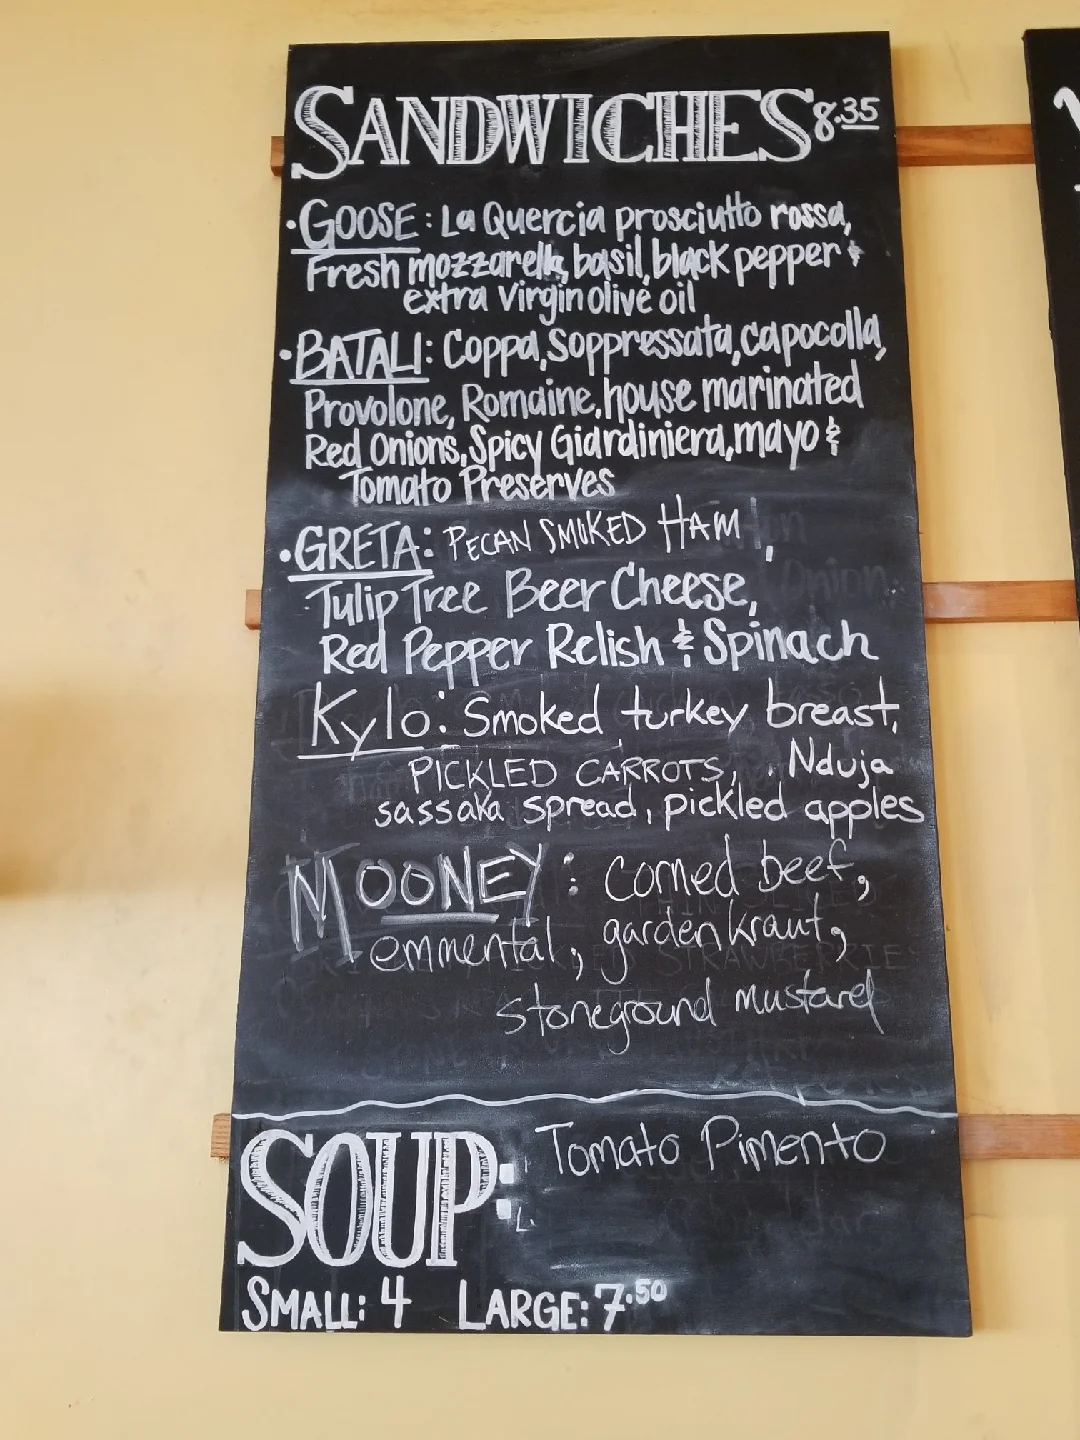 SANDWICHES 8.35
•GOOSE: La Quercia prosciutto rossa,
Fresh mozzarella, basil, black pepper &
extra virgin olive oil
•BATALI: Coppa, Soppressata, capocolla,
Provolone, Romaine, house marinated
Red Onions, Spicy Giardiniera, mayo &
Tomato Preserves
•GRETA: PECAN SMOKED HAM,
Tulip Tree Beer Cheese,
Red Pepper Relish & Spinach
Kylo: Smoked turkey breast,
PICKLED CARROTS, Nduja
sassaka spread, pickled apples
MOONEY: corned beef,
emmental, garden kraut,
stoneground mustard
SOUP: Tomato Pimento
SMALL: 4 LARGE: 7.50